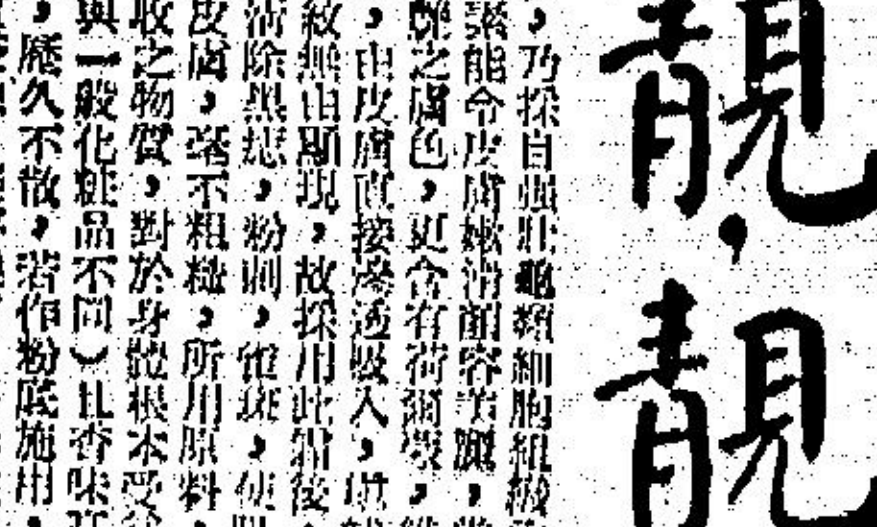 靚，靚
，乃採自強壯龜類細胞組織
能令皮膚嫩滑顏容美麗，
之膚色，更含有荷爾蒙，
，由皮膚直接滲透吸入，
紋無由顯現，故採用此霜後
沾除黑痣，粉刺，雀斑，使
皮膚，毫不粗糙，所用原料，
收之物質，對於身體根本受
與一般化粧品不同）且香味
，歷久不散，若作粉底施用，